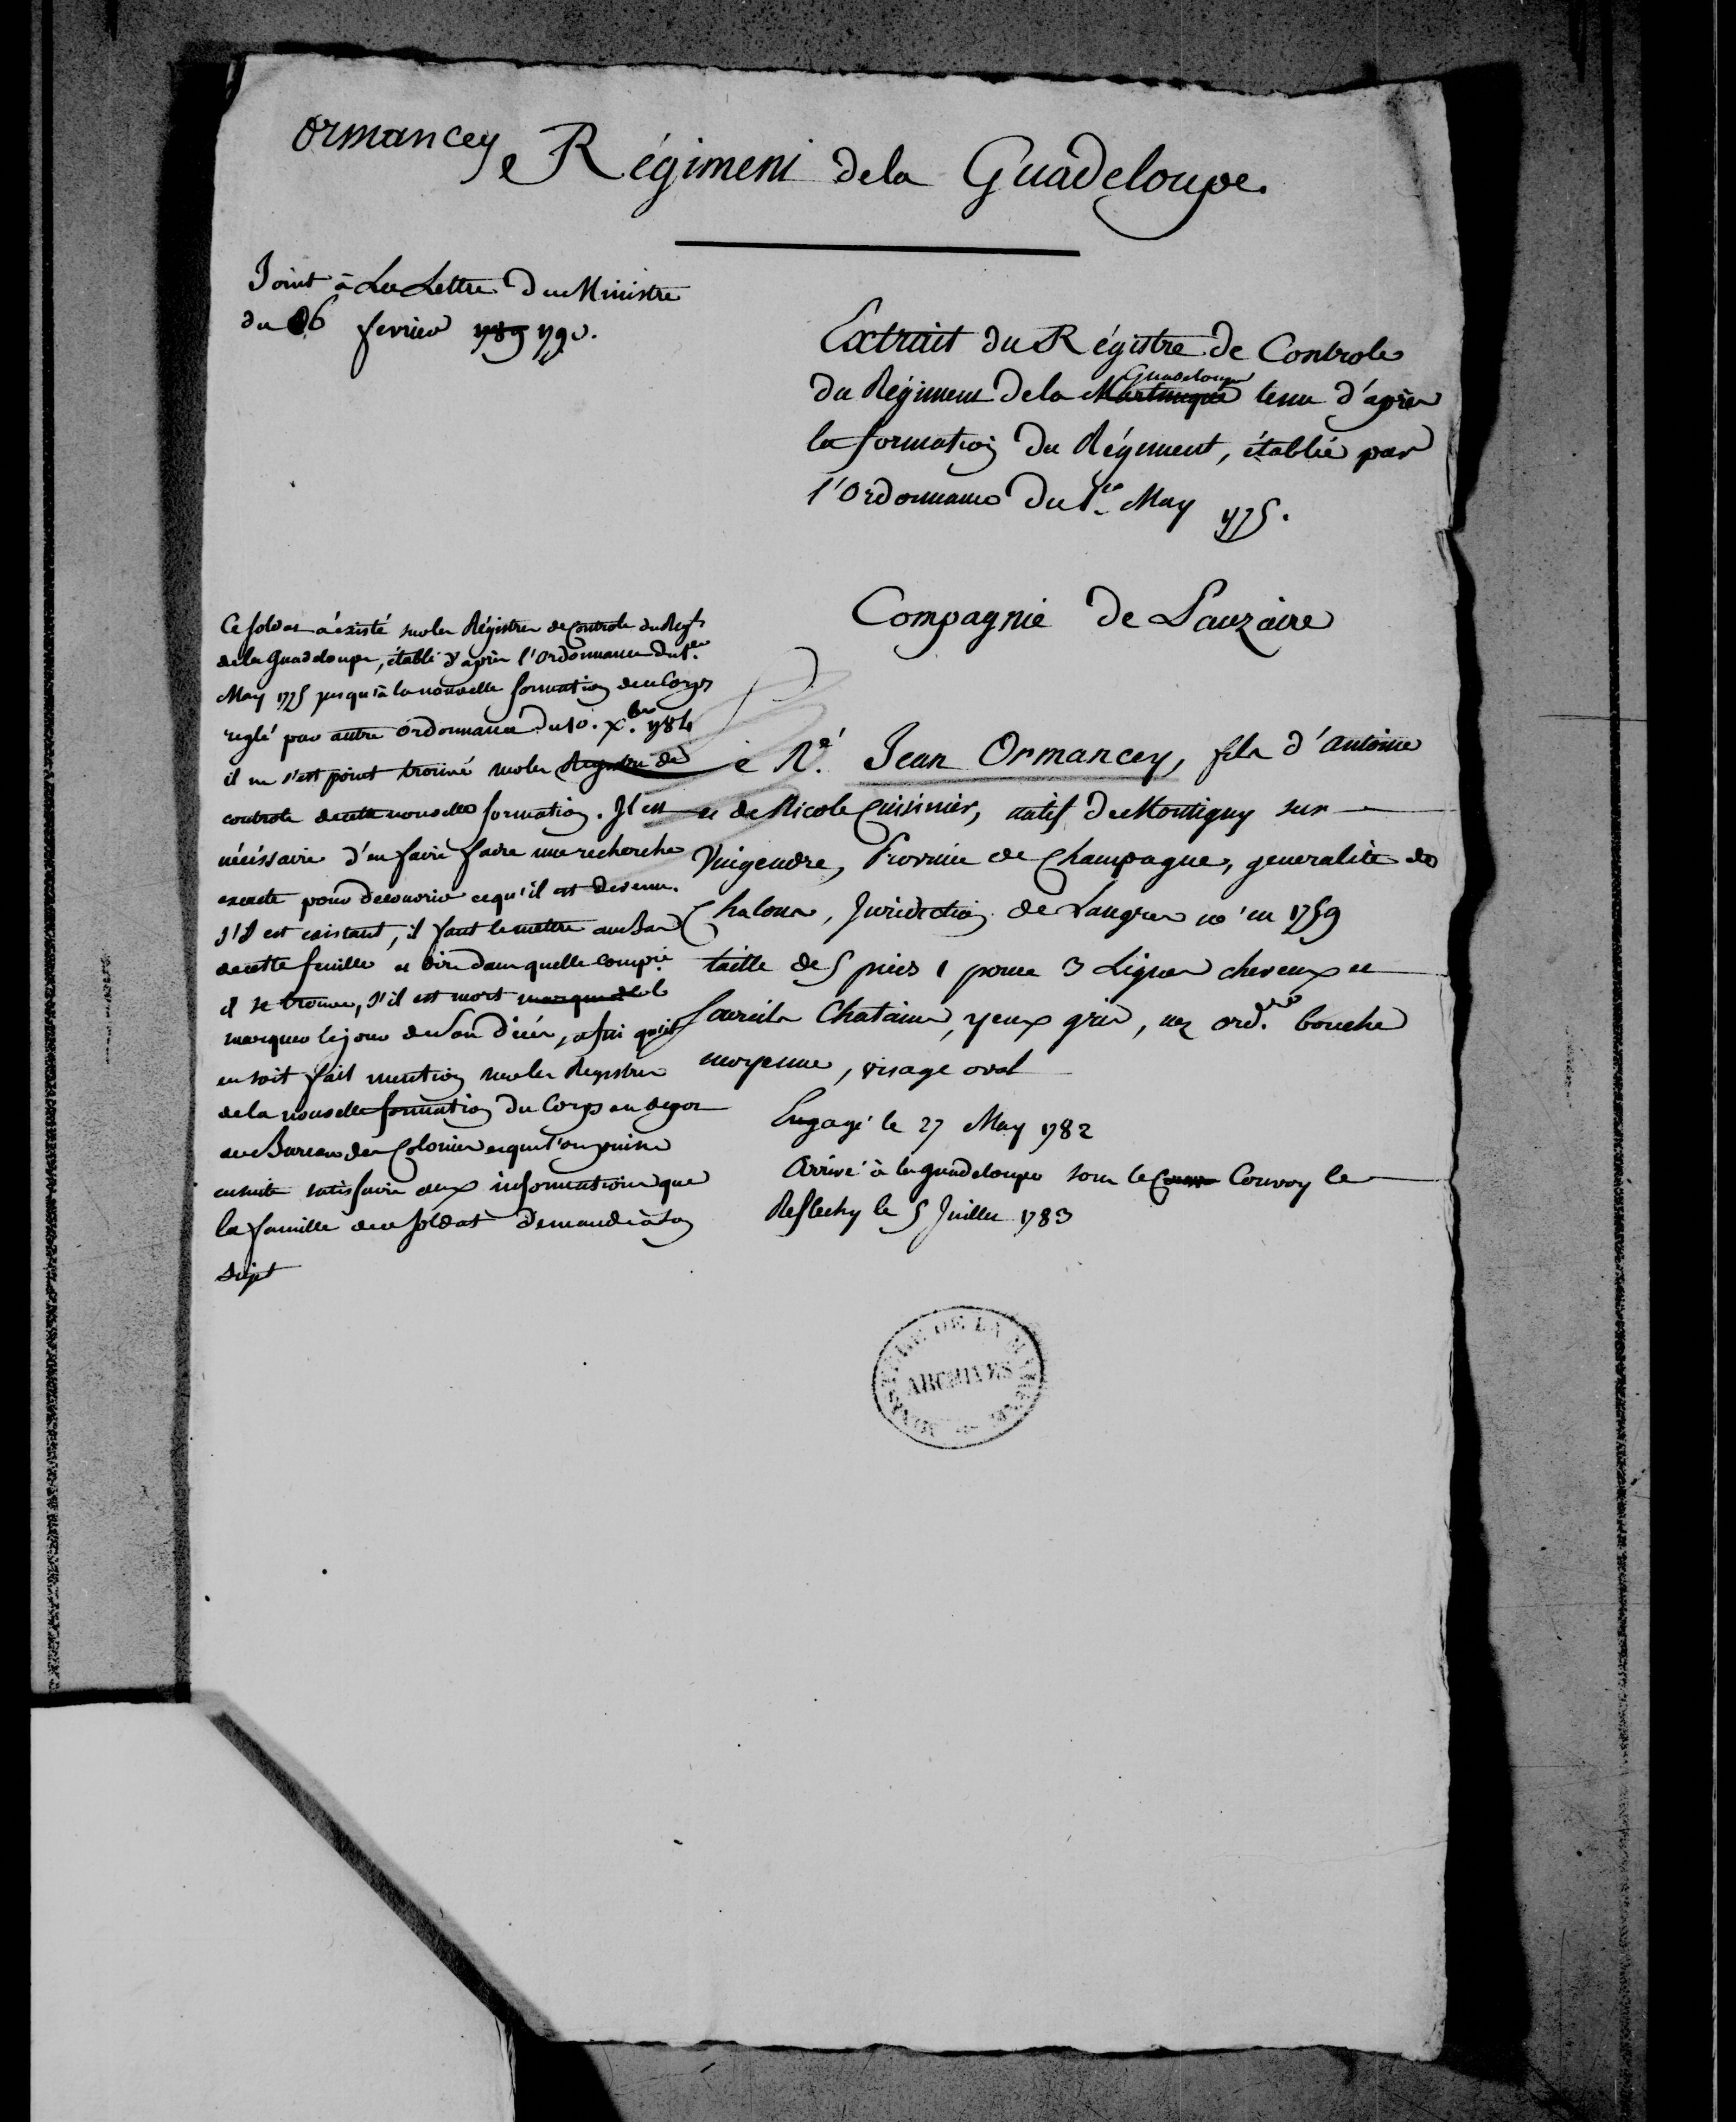 Ormancey
Régiment dela Guadeloupe.
Joint à La Lettre Du Ministre
du 26 fevrier 1789 1790.
Extrait du Régistre de Controle
du Régiment Dela Martinique Guadeloupe tenu d'après
la formation Du Régiment, établie par
l'Ordonnance Du 1er May 1775.
Compagnie De Lauzaire
Ce soldat a éxisté sur les Régistres de Controle du Regt
de la Guadeloupe, établi d'après l'Ordonnance du 1er
May 1775 jusqu'à la nouvelle formation de ce Corps
reglé par autre Ordonnance Du 10. Xbre 1784
il ne s'est point trouvé sur les Registres de
controle de cette nouvelle formation. Il est
nécéssaire d'en faire faire une recherche
exacte pour decouvrir ce qu'il est devenu.
S'il est existant, il faut le mettre au bas
de cette feuille et dire dans quelle compie
il se trouve, s'il est mort marquer le
marquer le jour de son décès, afin qu'il
en soit fait mention sur les Registres
de la nouvelle formation Du Corps en depot
au Bureau des Colonies et que l'on puisse
ensuite satisfaire aux informations que
la famille de ce soldat demande à son
sujet
Né Jean Ormancey, fils d'Antoine
et de Nicole Cuisinier, natif De Montigny sur
Vingendre, Province de Champagne, generalité de
Chalons, Juridiction de Langres né en 1759
taille de 5 pieds 1 pouce 3 Lignes cheveux et
Sourcils Chatains, yeux gris, nez ordre bouche
moyenne, visage oval
Engagé le 27 May 1782
Arrivé à la guadeloupe sous le Convoy le
Reflechy le 5 Juillet 1783
MINISTERE DE LA MARINE
ARCHIVES